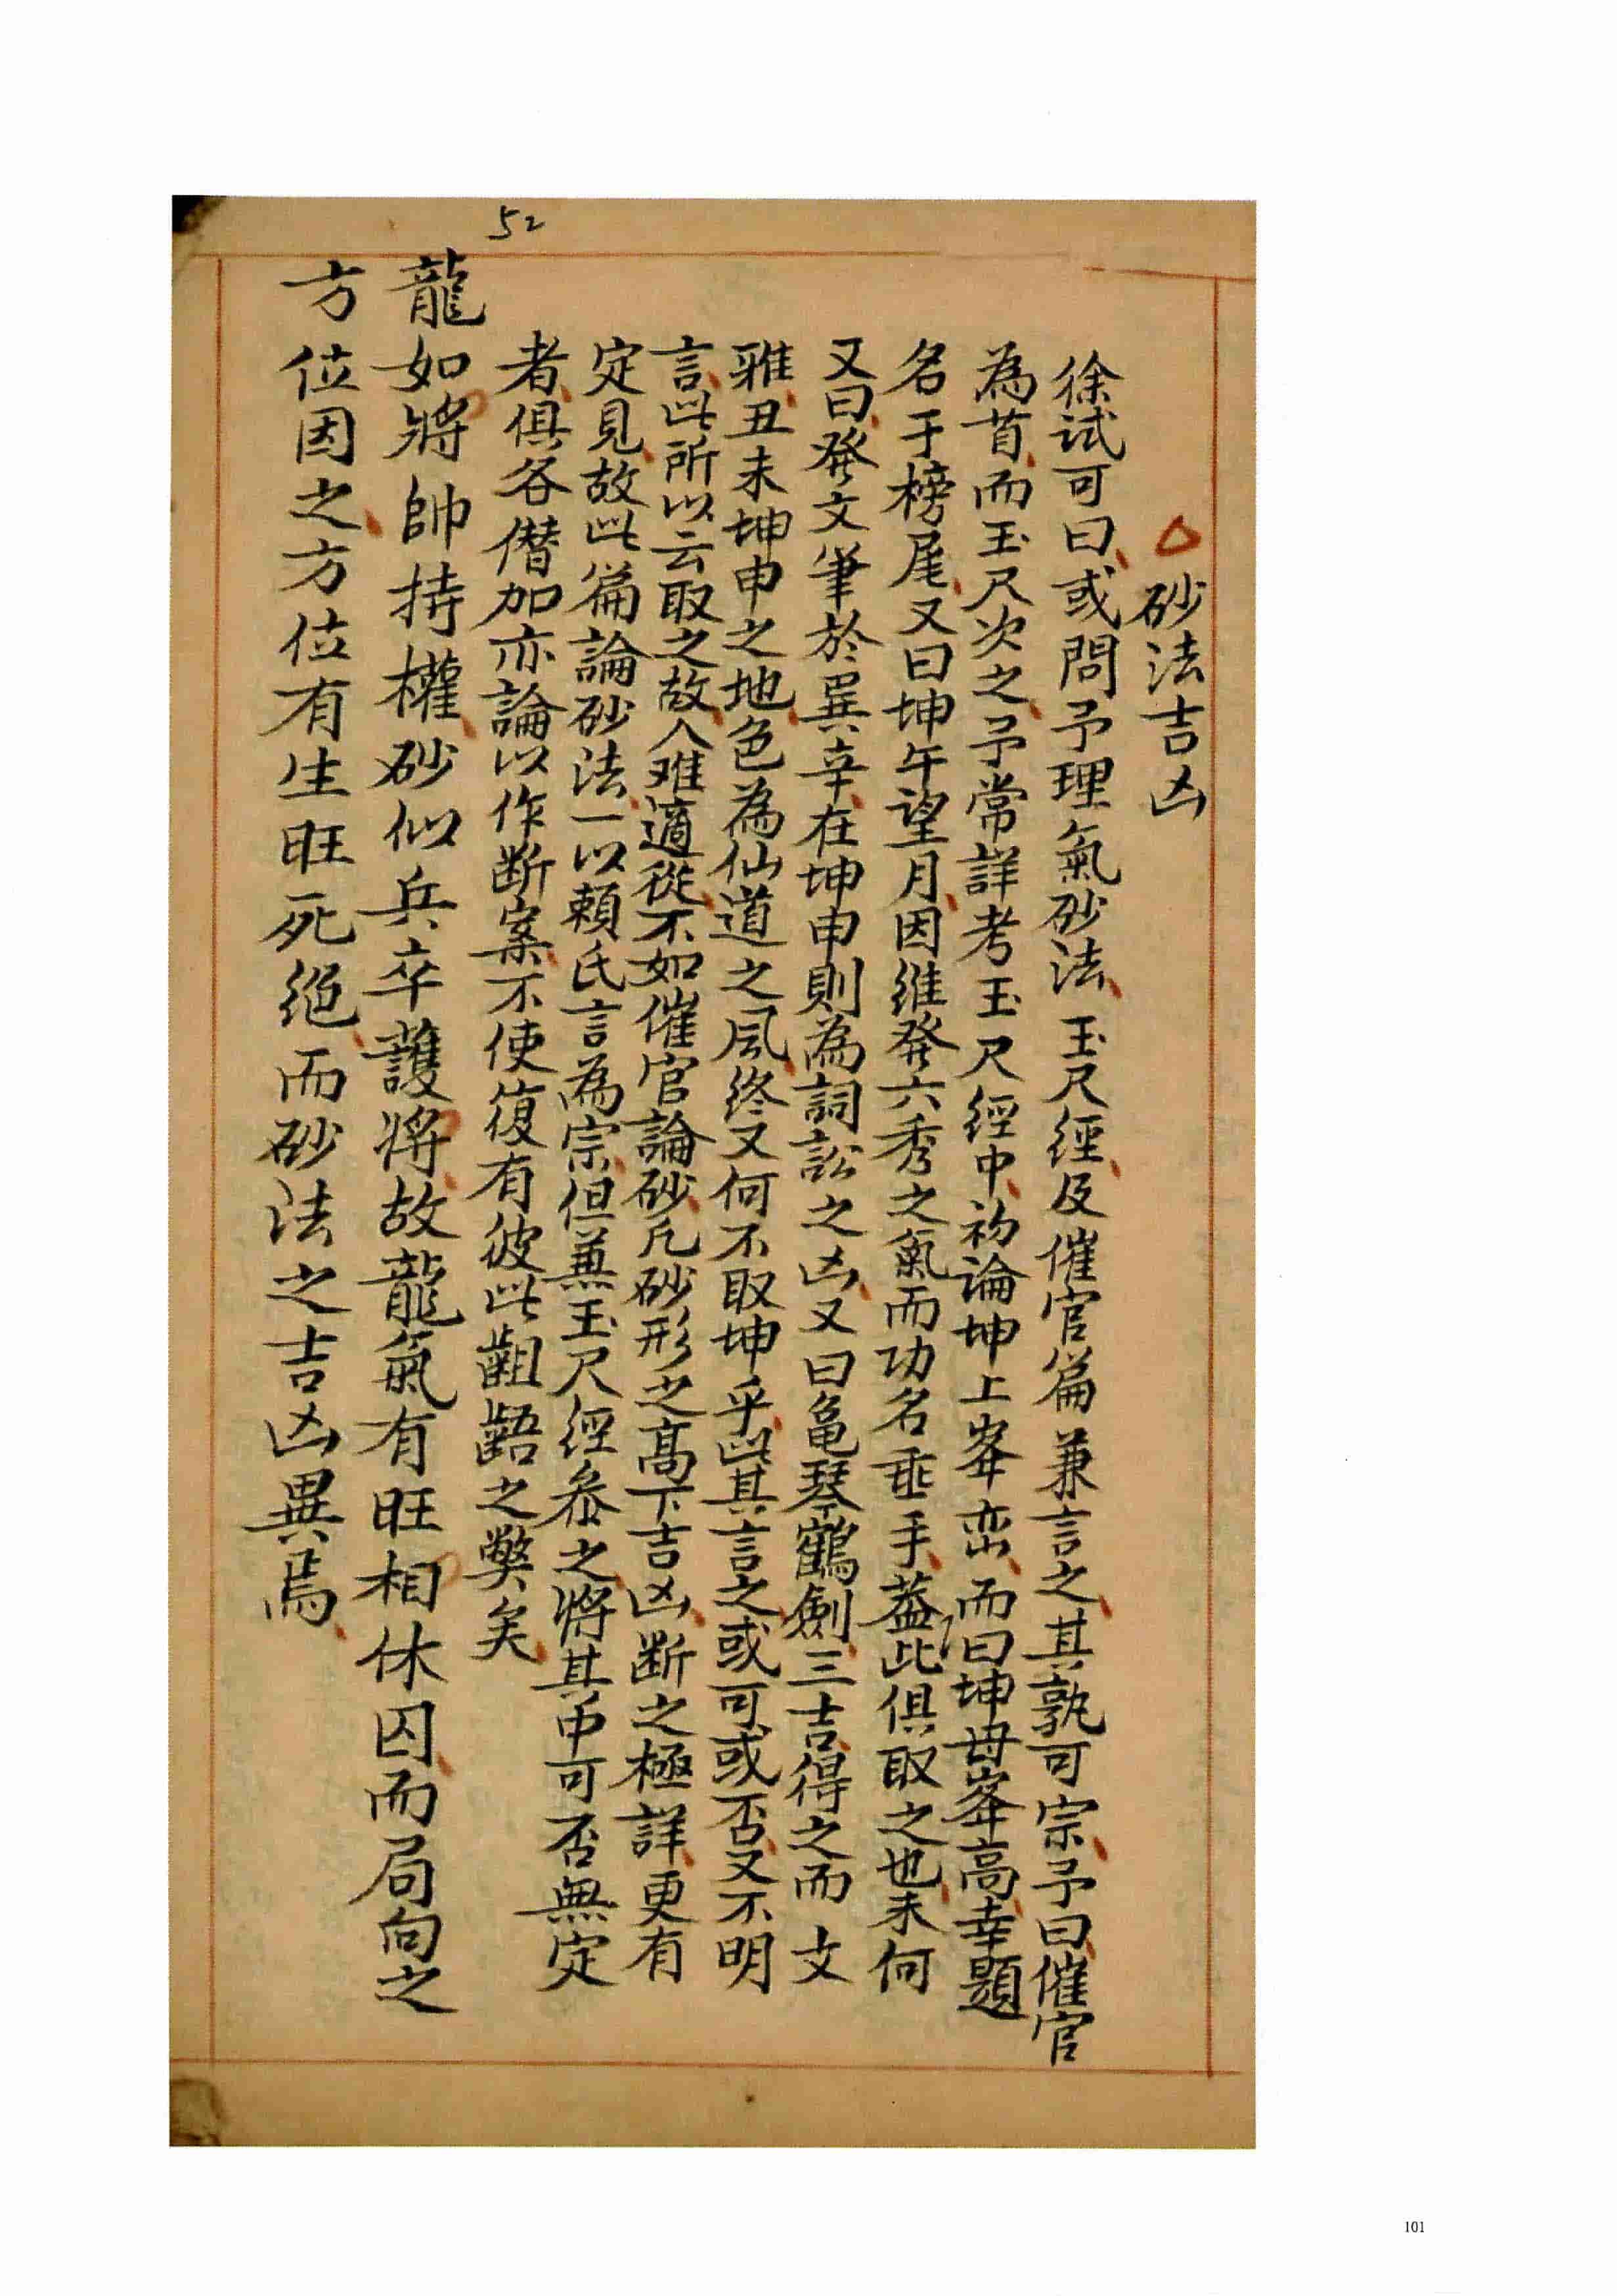 52
砂法吉凶
徐試可曰或問予理氣砂法玉尺經及催官篇兼言之其孰可宗予曰催官
為首而玉尺次之予常詳考玉尺經中初論坤上峯峦而曰坤母峯高幸題
名于榜尾又曰坤午望月因維發六秀之氣而功名垂手蓋此俱取之也未何
又曰發文筆於巽辛在坤申則為詞訟之凶又曰龟琴鶴劍三吉得之而文
雅丑未坤申之地色為仙道之風終又何不取坤乎此其言之或可或否又不明
言此所以云取之故人难適從不如催官論砂凡砂形之高下吉凶断之極詳更有
定見故此篇論砂法一以賴氏言為宗但兼玉尺經叅之將其中可否無定
者俱各僭加亦論以作断案不使復有彼此齟齬之獘矣
龍如將帥持權砂似兵卒護將故龍氣有旺相休囚而局向之
方位因之方位有生旺死绝而砂法之吉凶異焉
101